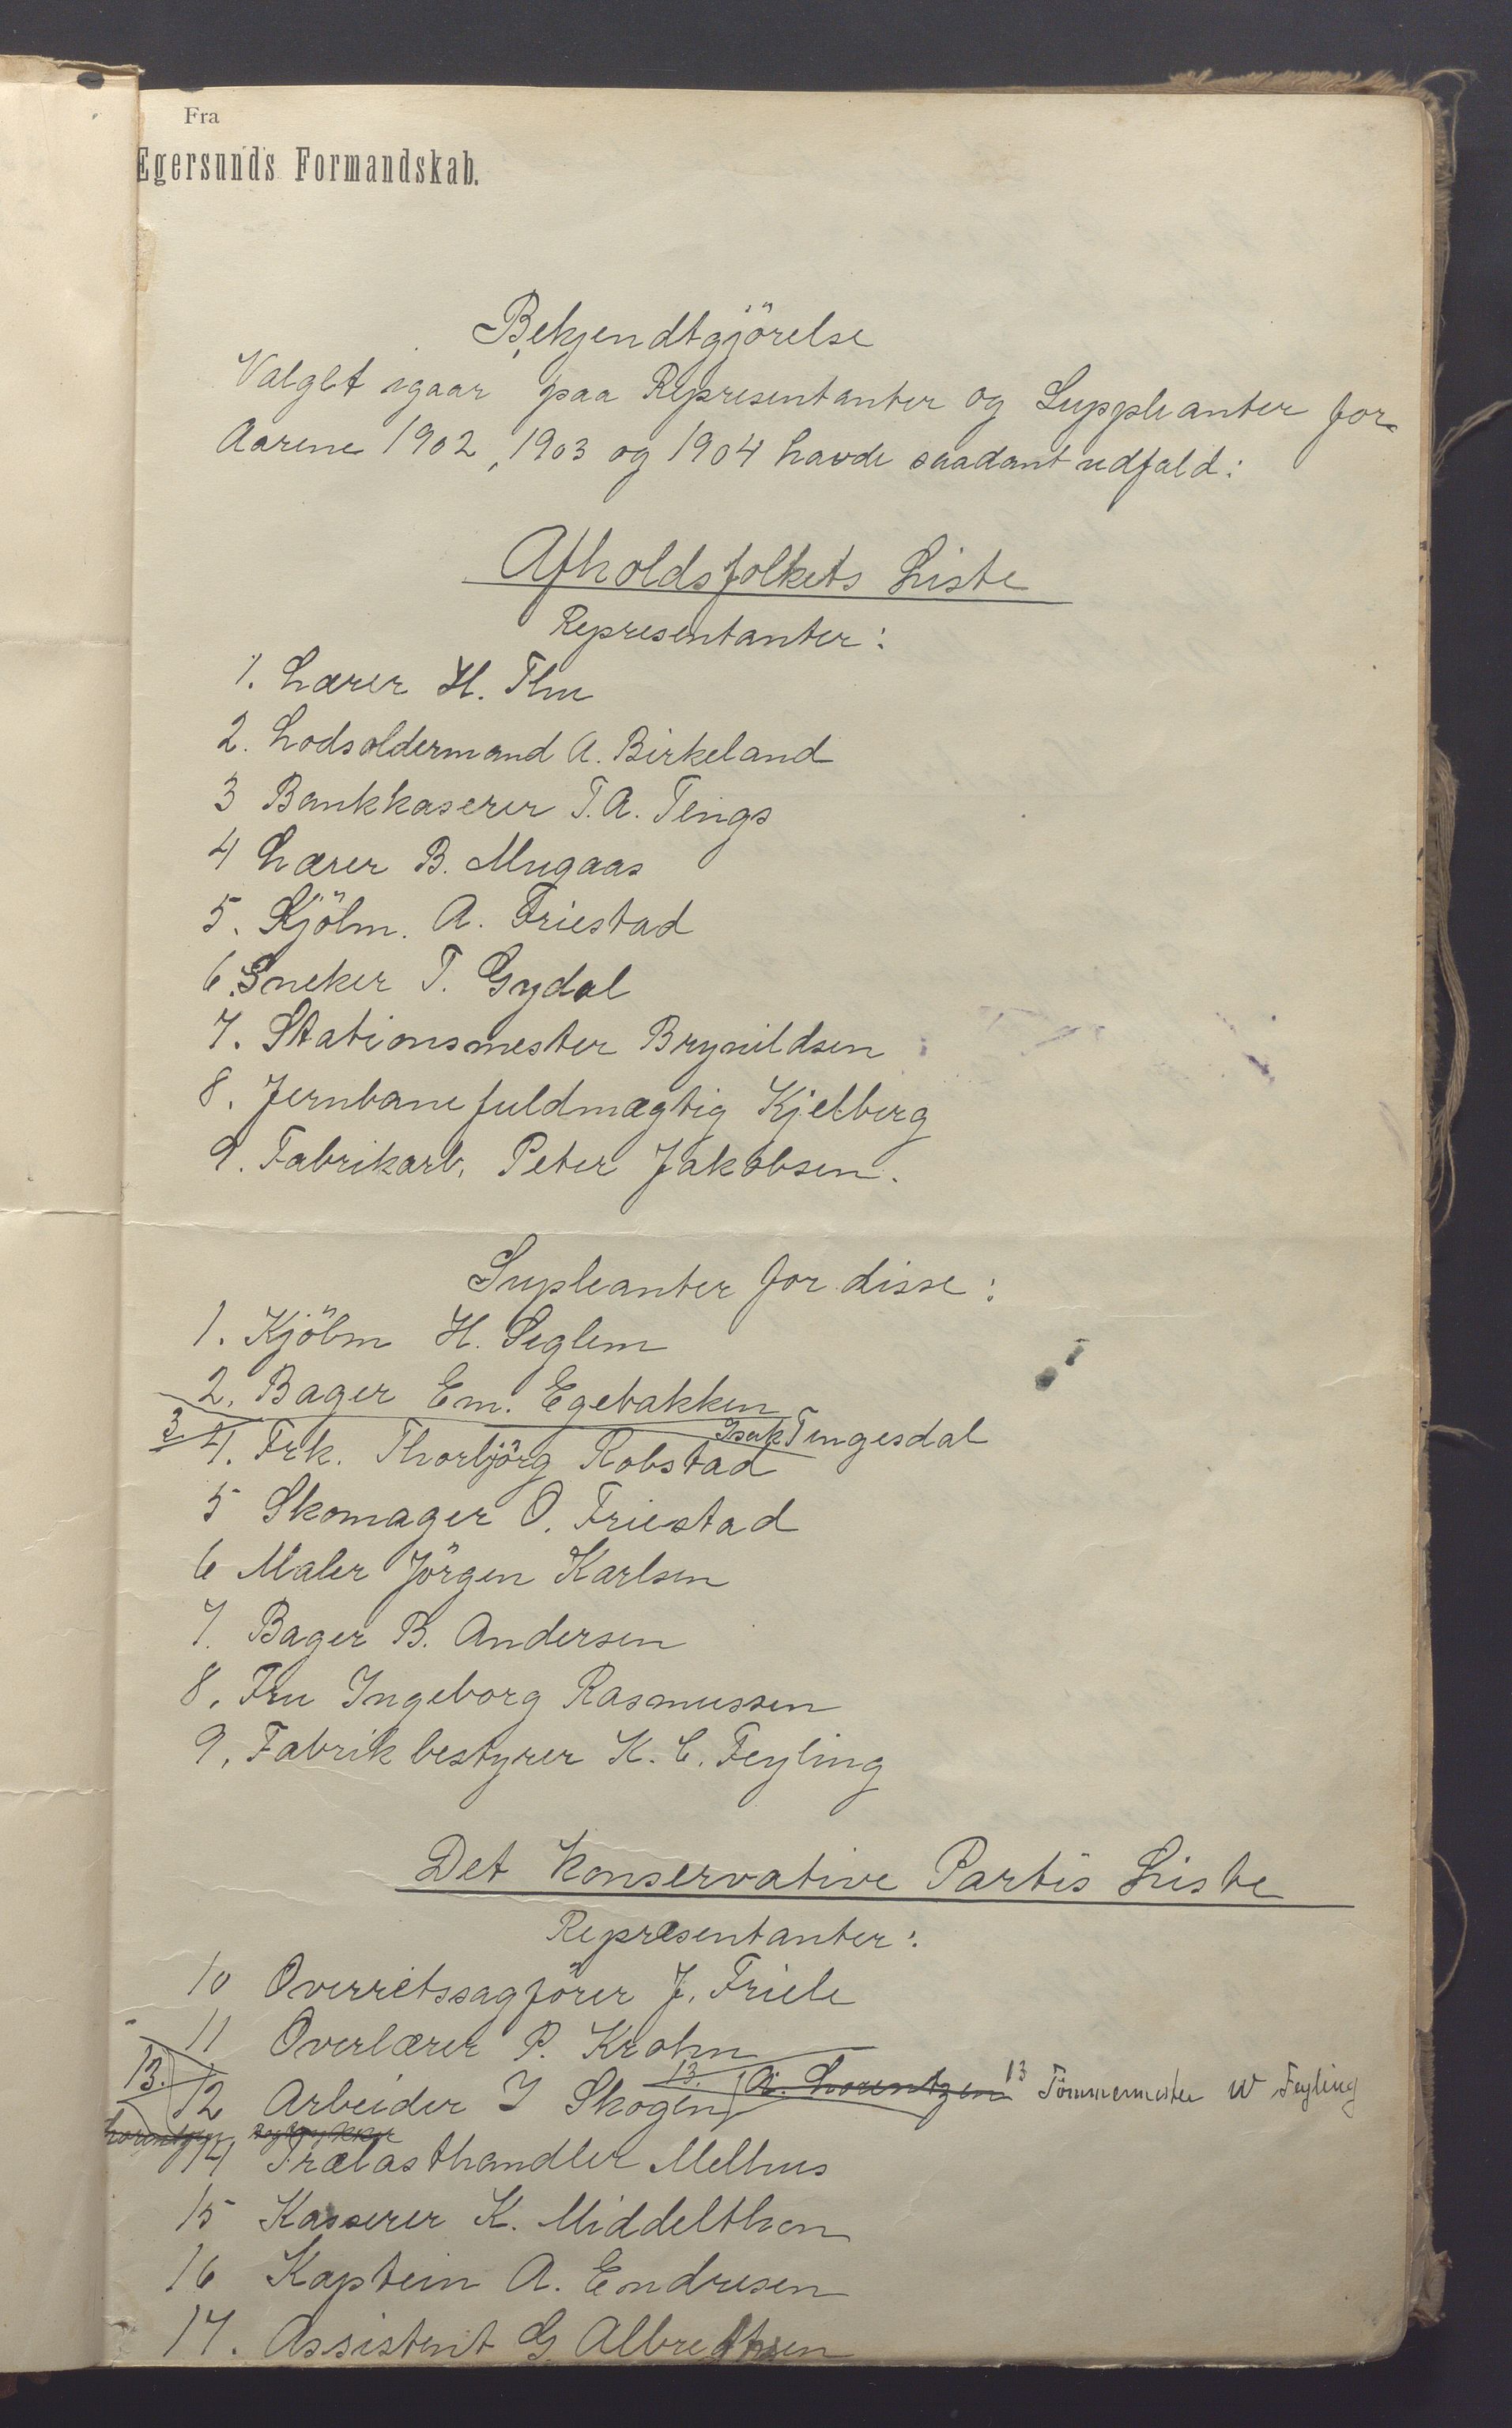 Fra
Egersunds Formandskab.
Bekjendtgjörelse
Valget igaar paa Representanter og Suppleanter for
Aarene 1902, 1903 og 1904 havde saadant udfald:
Afholdsfolkets Liste
Representanter:
1. Lærer H. Thu
2. Lodsoldermand A. Birkeland
3 Bankkaserer T. A. Tengs
4 Lærer B. Mugaas
5. Kjölm. A. Friestad
6. Sneker T. Gydal
7. Stationsmester Brynildsen
8. Jernbanefuldmægtig Kjelberg
9. Fabrikarb. Peter Jakobsen.
Supleanter for disse:
1. Kjölm H. Seglem
2. Bager Em. Egebakken
3. Isak Tengesdal
4. Frk. Thorbjörg Robstad
5 Skomager O. Friestad
6 Maler Jörgen Karlsen
7. Bager B. Andersen
8. Fru Ingeborg Rasmussen
9. Fabrikbestyrer K. C. Feyling
Det Konservative Partis Liste
Repræsentanter:
10 Overretssagförer J. Friele
11 Overlærer P. Krohn
13. 12 Arbeider I Skogen 13. A. Lorentzen 13 Tömmermester W Feyling
Lorentzen
14 Trælasthandler Melhus
15 Kasserer K. Middelthon
16 Kaptein A. Endresen
17. Assistent G Albrethsen